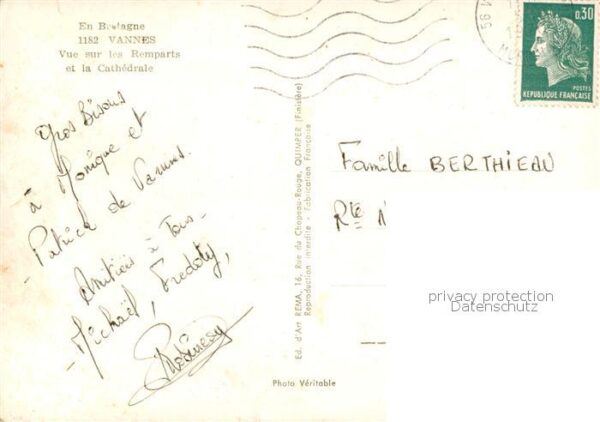 En Bretagne
1182 VANNES
Vue sur les Remparts
et la Cathédrale
Gros Bisous
à Monique et
Patrick de Vannes.
Amitiés à Tous -
- Michaël, Freddy,
Ed. d'Art REMA, 16, Rue du Chapeau-Rouge, QUIMPER (Finistère)
Reproduction interdite - Fabrication Française
Photo Véritable
0,30
POSTES
REPUBLIQUE FRANÇAISE
56
Famille BERTHIEAU
Rte
privacy protection
Datenschutz